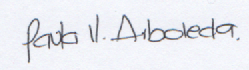 Paula V. Arboleda.